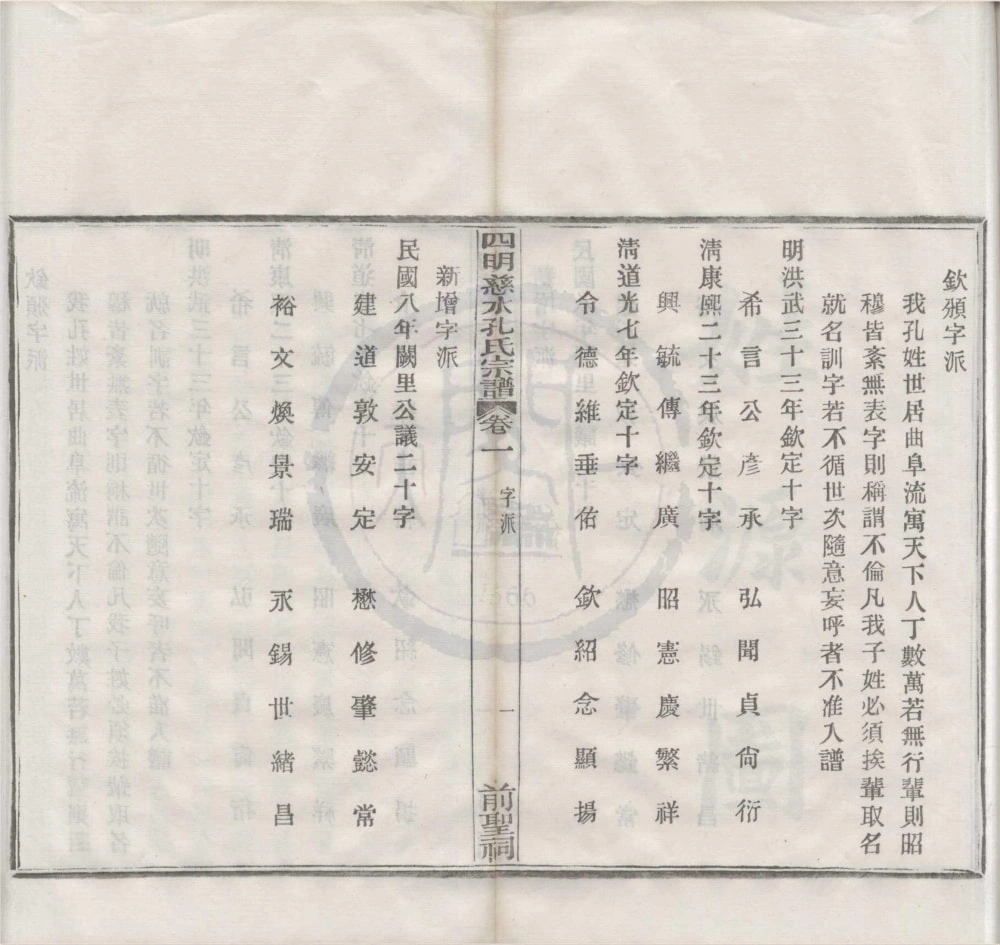 欽頒字派
我孔姓世居曲阜流寓天下人丁數萬若無行輩則昭
穆皆紊無表字則稱謂不倫凡我子姓必須挨輩取名
就名訓字若不循世次隨意妄呼者不准入譜
明洪武三十三年欽定十字
希言公彦承 弘聞貞尙衍
淸康熙二十三年欽定十字
興毓傳繼廣 昭憲慶繁祥
淸道光七年欽定十字
令德維垂佑 欽紹念顯揚
四明慈水孔氏宗譜 卷一 字派 一 前聖祠
新增字派
民國八年闕里公議二十字
建道敦安定 懋修肇懿常
裕文煥景瑞 永錫世緒昌